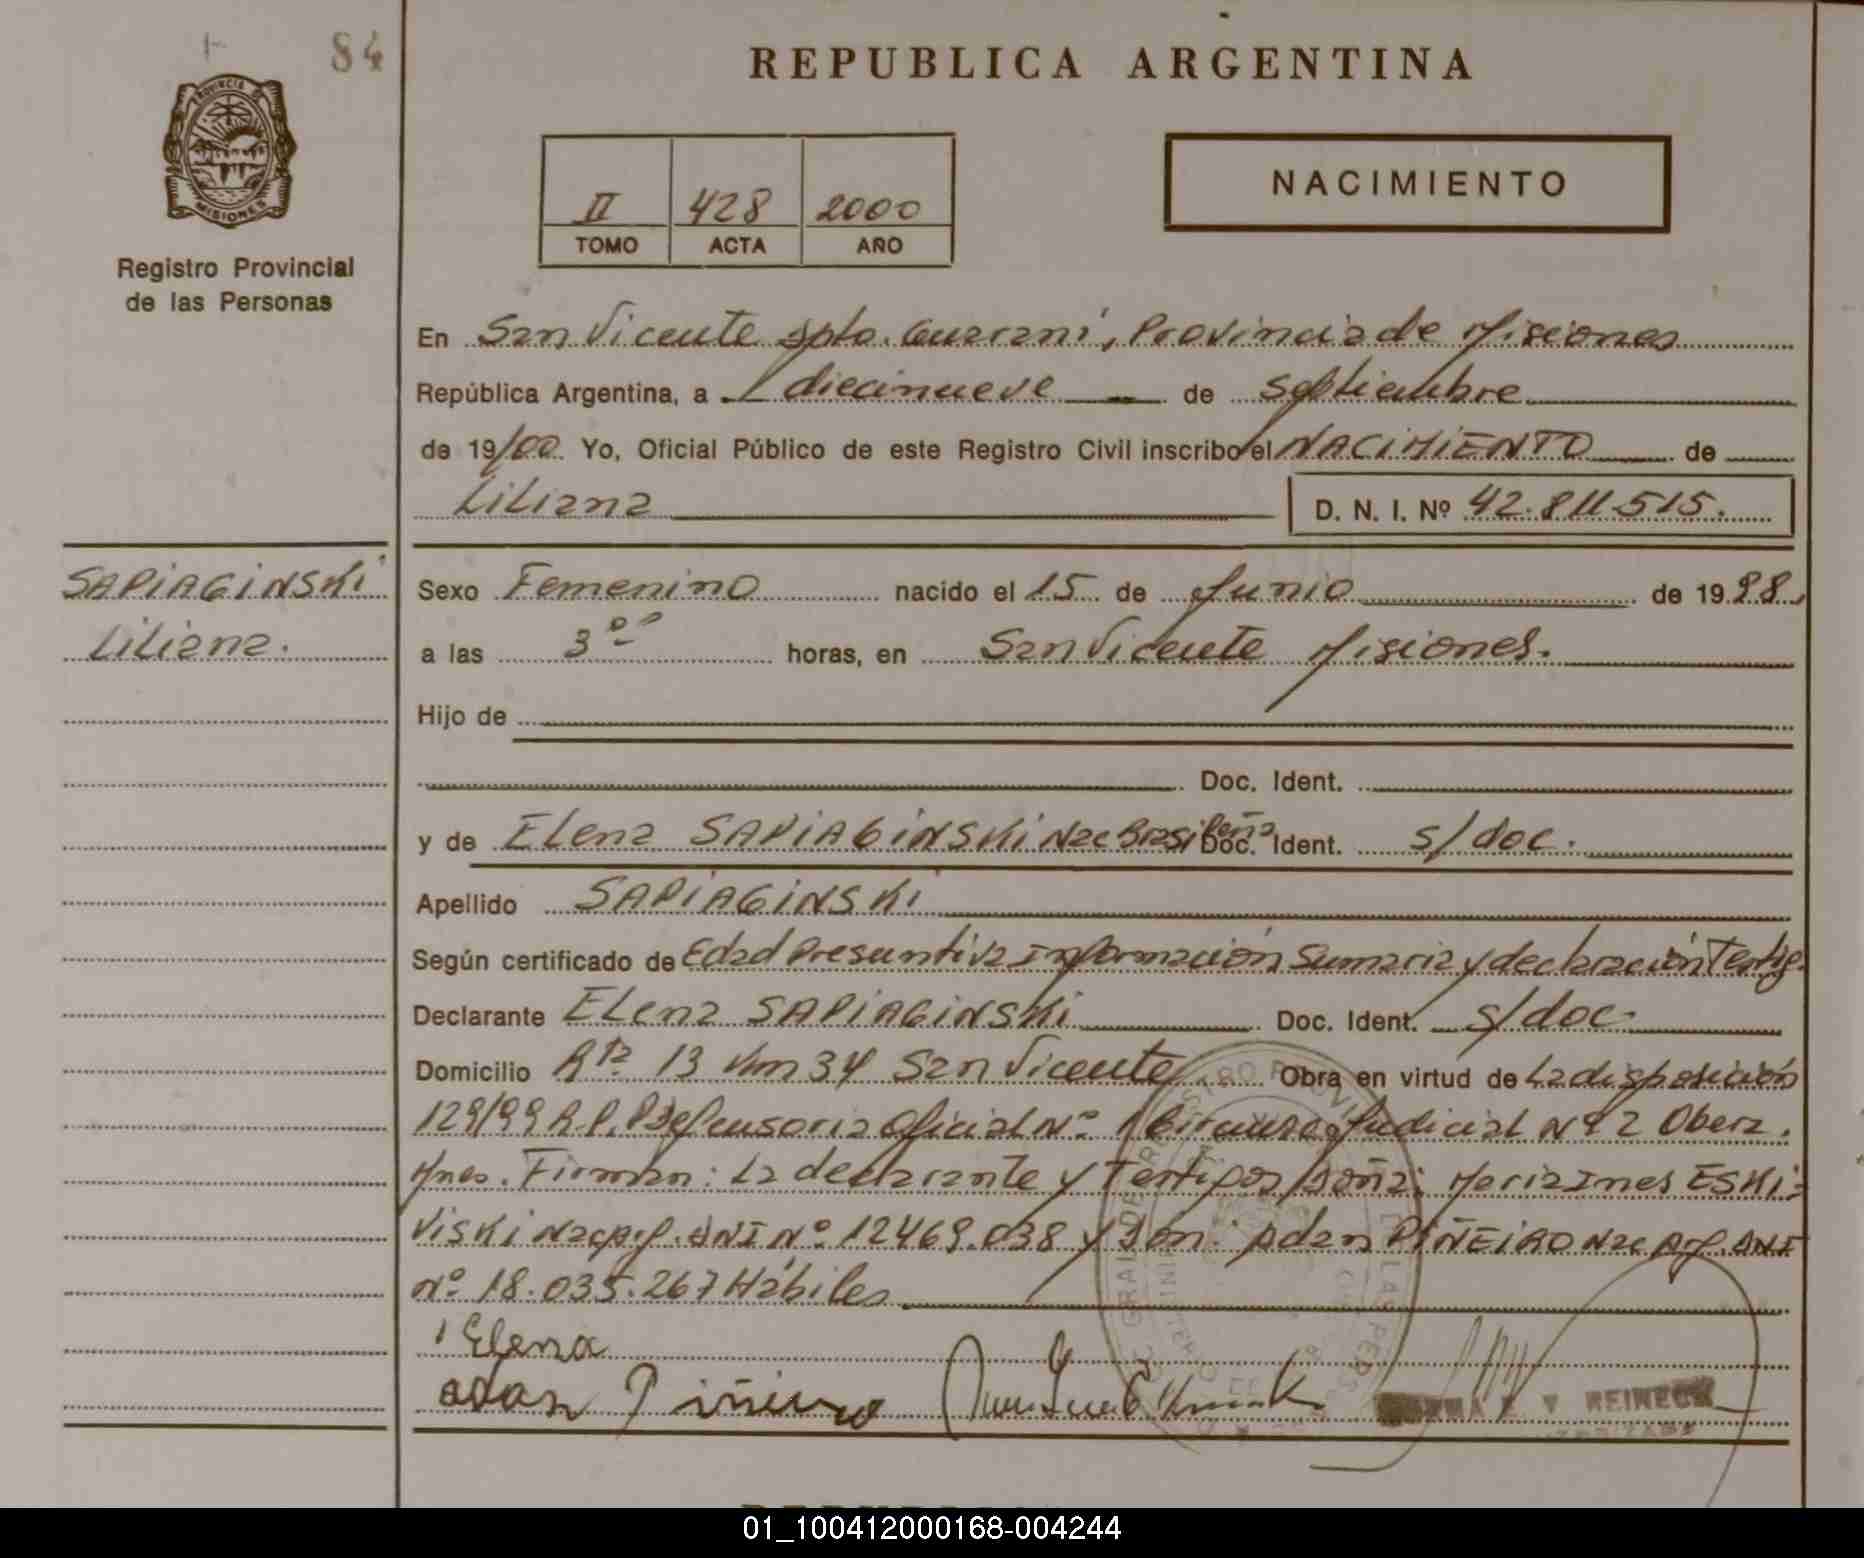 84
PROVINCIA D
MISIONES
Registro Provincial
de las Personas
SAPIAGINSKI
Liliana.
REPUBLICA ARGENTINA
II 428 2000
TOMO ACTA AÑO
NACIMIENTO
En San Vicente Dpto. Guarani, Provincia de Misiones
República Argentina, a diecinueve de Septiembre
de 19/00 Yo, Oficial Público de este Registro Civil inscribo el NACIMIENTO de
Liliana D. N. I. Nº 42.811.515.
Sexo Femenino nacido el 15 de Junio de 1998,
a las 3 oo horas, en San Vicente Misiones.
Hijo de
Doc. Ident.
y de Elena SAPIAGINSKI Nac Brasileña Doc. Ident. s/doc.
Apellido SAPIAGINSKI
Según certificado de Edad Presuntiva Información Sumaria y declaración Testig.
Declarante Elena SAPIAGINSKI Doc. Ident. s/doc.
Domicilio Rta 13 Km 34 San Vicente Obra en virtud de La disposición
129/99 R.P.P Defensoria Oficial Nº 1 Circunsc. Judicial Nº 2 Obera.
Mnes. Firman: La declarante y Testigos doña: Maria Ines ESKI-
VISKI Nac Arg. DNI Nº 12469.038 y Don: Adan PIÑEIRO Nac Arg. DNI
nº 18.035.267 Hábiles
Elena
adan Piñeiro
REINECK
01_100412000168-004244